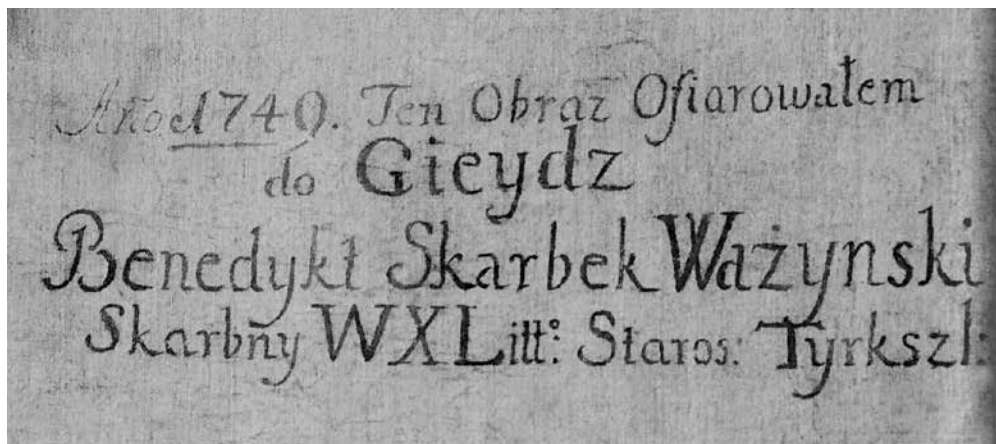 Año 1749. Ten Obraz Ofiarowałem
do Gieydz
Benedykt Skarbek Ważynski
Skarbñy WXLitt: Staros: Tyrkszl: